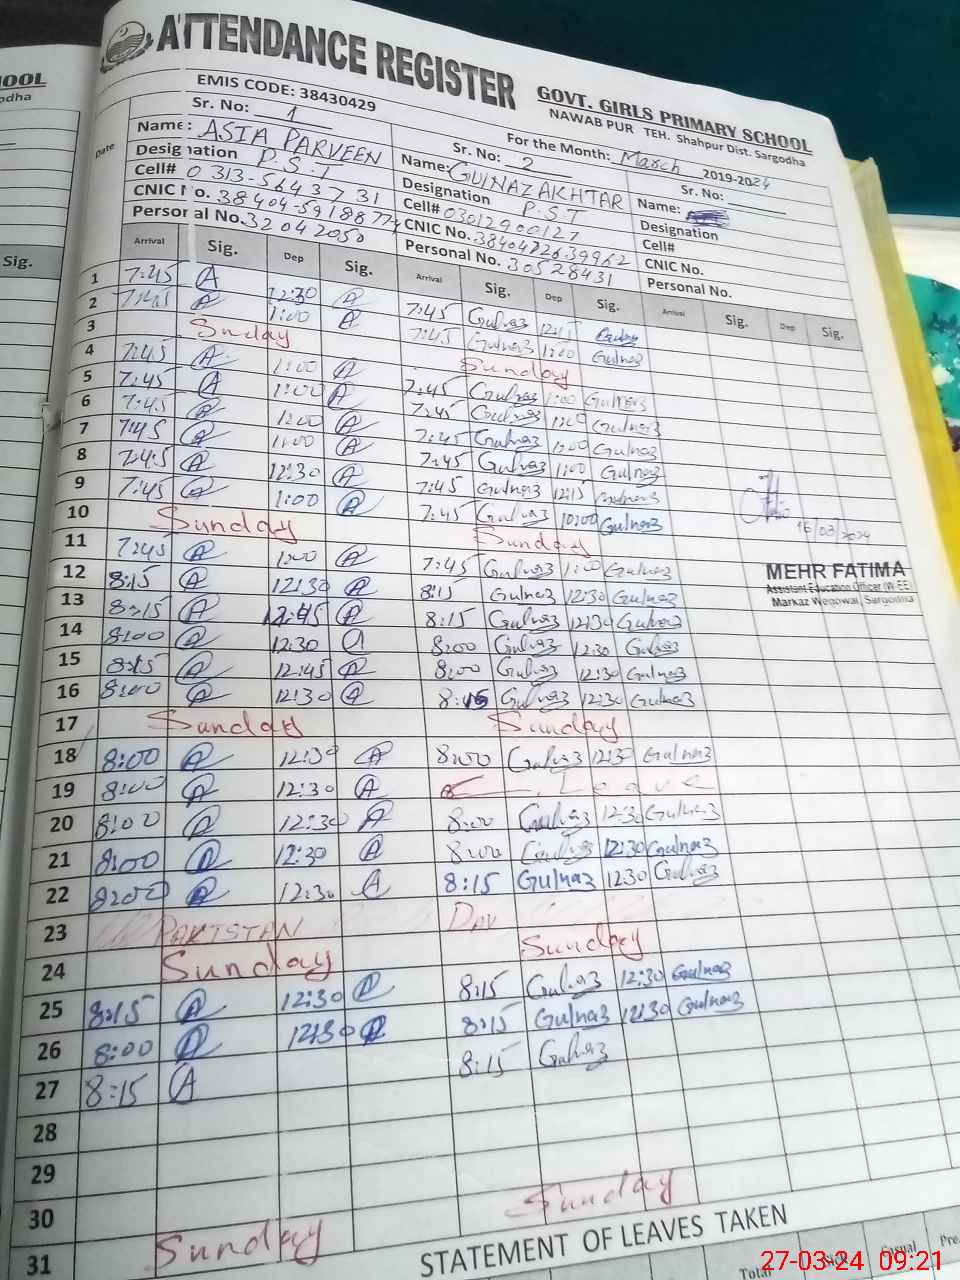 HOOL
odha
Sig.
ATTENDANCE REGISTER
GOVT. GIRLS PRIMARY SCHOOL
EMIS CODE: 38430429
NAWAB PUR TEH. Shahpur Dist. Sargodha
For the Month: March 2019-2024
Date
Sr. No: 1 Sr. No: 2 Sr. No:
Name: ASIA PARVEEN Name: GULNAZ AKHTAR Name:
Designation P.S.T Designation P.S.T Designation
Cell# 0313-5643731 Cell# 03012900127 Cell#
CNIC No. CNIC No. CNIC No.
Personal No. 32042050 Personal No. 30528431 Personal No.
Arrival Sig. Dep Sig. Arrival Sig. Dep Sig. Arrival Sig. Dep Sig.
1 7:45 A 12:30 A 7:45 Gulnaz 12:15 Gulnaz
2 7:45 A 1:00 A 7:45 Gulnaz 12:00 Gulnaz
3 Sunday Sunday
4 7:45 A 1:00 A 7:45 Gulnaz 1:00 Gulnaz
5 7:45 A 1:00 A 7:45 Gulnaz 1:00 Gulnaz
6 7:45 A 1:00 A 7:45 Gulnaz 1:00 Gulnaz
7 7:45 A 1:00 A 7:45 Gulnaz 1:00 Gulnaz
8 7:45 A 12:30 A 7:45 Gulnaz 12:15 Gulnaz
9 7:45 A 1:00 A 7:45 Gulnaz Gulnaz
10 Sunday Sunday
16/03/2024
11 7:45 A 1:00 A 7:45 Gulnaz 1:00 Gulnaz
12 8:15 A 12:30 A 8:15 Gulnaz 12:30 Gulnaz
MEHR FATIMA
Assistant Education Officer (W-EE)
Markaz Wegowal, Sargodha
13 8:15 A 12:45 A 8:15 Gulnaz 12:30 Gulnaz
14 8:00 A 12:30 A 8:00 Gulnaz 12:30 Gulnaz
15 8:15 A 12:45 A 8:00 Gulnaz 12:30 Gulnaz
16 8:00 A 12:30 A 8:15 Gulnaz 12:30 Gulnaz
17 Sunday Sunday
18 8:00 A 12:30 A 8:00 Gulnaz 12:30 Gulnaz
19 8:00 A 12:30 A Leave
20 8:00 A 12:30 A 8:00 Gulnaz 12:30 Gulnaz
21 8:00 A 12:30 A 8:00 Gulnaz 12:30 Gulnaz
22 8:00 A 12:30 A 8:15 Gulnaz 12:30 Gulnaz
23 PAKISTAN DAY
24 Sunday Sunday
25 8:15 A 12:30 A 8:15 Gulnaz 12:30 Gulnaz
26 8:00 A 12:30 A 8:15 Gulnaz 12:30 Gulnaz
27 8:15 A 8:15 Gulnaz
28
29
30
31 Sunday Sunday
STATEMENT OF LEAVES TAKEN
Total Sick Casual Pre.
27-03-24 09:21